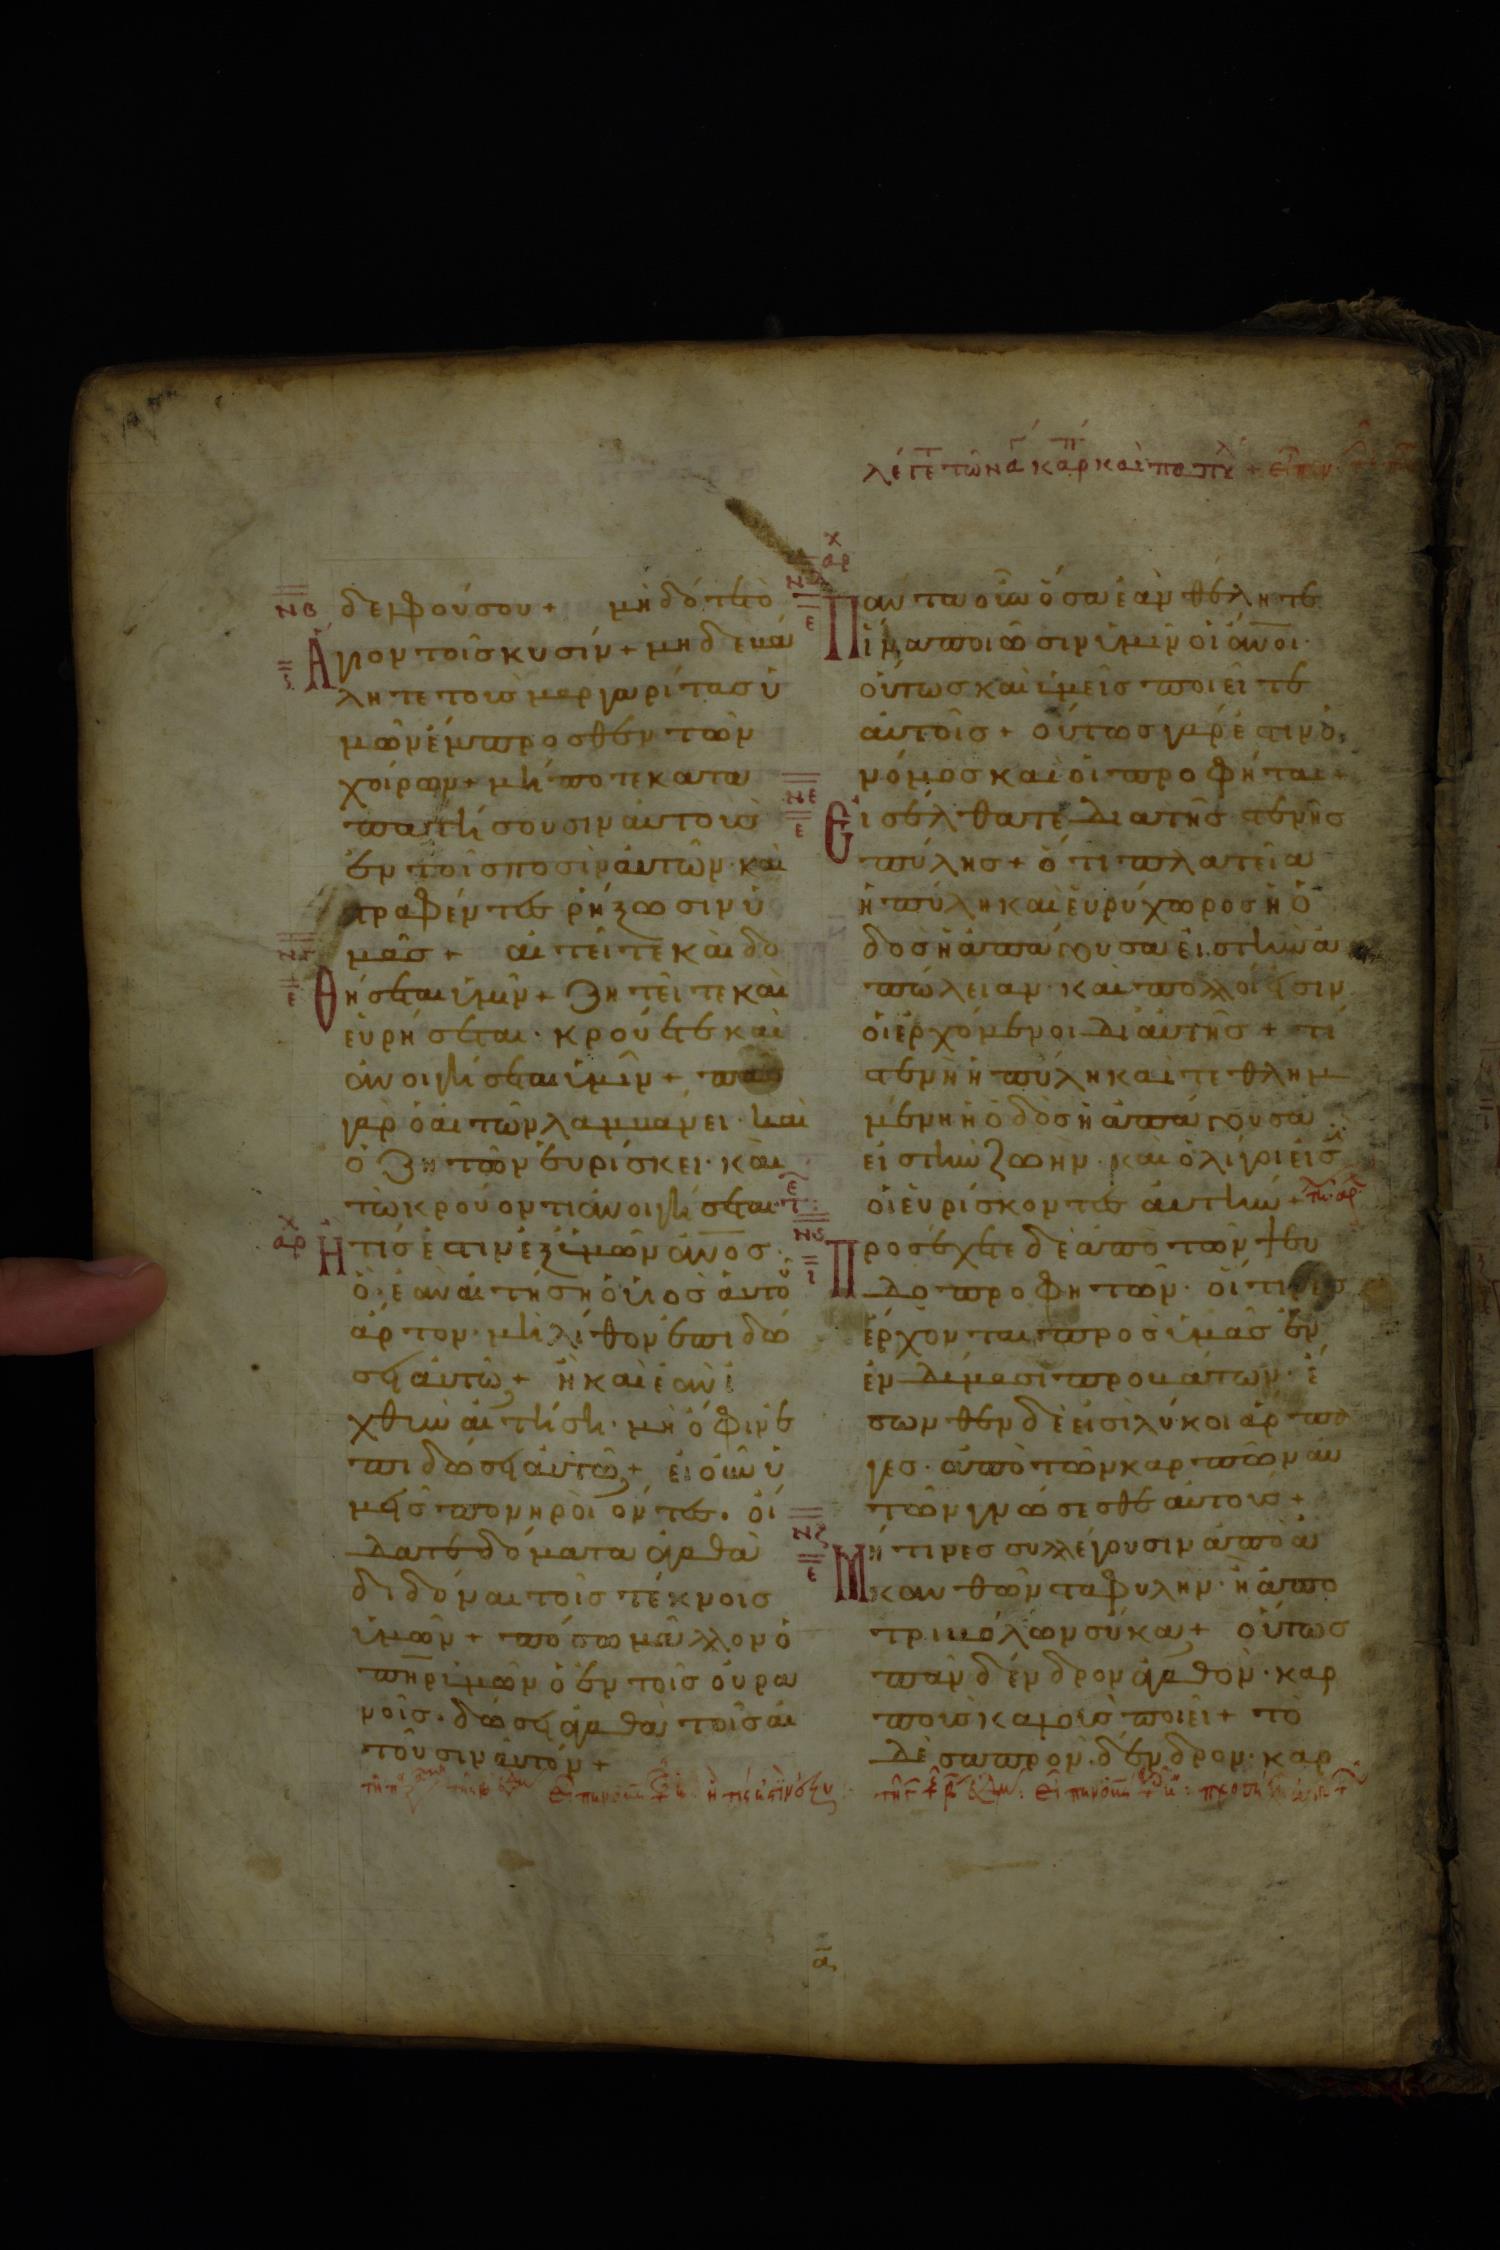 δελφούσου + μὴ δότε τὸ
ἅγιον τοῖς κυσίν + μηδε βά
λητε τοὺς μαργαρίτας ὑ
μῶν ἔμπροσθεν τῶν
χοίρων + μήποτε κατα
πατήσουσιν αὐτοὺς
ἐν τοῖς ποσὶν αὐτῶν · καὶ
στραφέντες ῥήξωσιν ὑ
μᾶς + αἰτεῖτε καὶ δο
θήσεται ὑμῖν + ζητεῖτε καὶ
εὑρήσεται · κρούετε καὶ
ἀνοιγήσεται ὑμῖν + πας
γὰρ ὁ αἰτῶν λαμβάνει · καὶ
ὁ ζητῶν εὑρίσκει · καὶ
τῶ κρούοντι ἀνοιγήσεται ·
Ἢ τίς ἐστιν ἐξ ὑμῶν ἄνος ·
ὃ ἐὰν αἰτήση ὁ υἱὸς αὐτοῦ
ἄρτον · μὴ λίθον ἐπιδώ
σει αὐτῶ + ἢ καὶ ἐὰν ἰ
χθὺν αἰτήση · μὴ ὄφιν ἐ
πιδώσει αὐτῶ + εἰ οὖν ὑ
μεῖς πονηροὶ ὄντες · οἴ
δατε δόματα ἀγαθὰ
διδόναι τοῖς τέκνοις
ὑμῶν + πόσω μᾶλλον ὁ
πηρ ὑμῶν ὁ ἐν τοῖς οὐρα
νοῖς · δώσει ἀγαθὰ τοῖς αἰ
τοῦσιν αὐτόν +
Πάντα οὖν ὅσα ἐὰν θέλητε
ἵνα ποιῶσιν ὑμῖν οἱ ἄνοι ·
οὕτως καὶ ὑμεῖς ποιεῖτε
αὐτοῖς + οὕτως γάρ ἐστιν ὁ
νόμος καὶ οἱ προφῆται +
Εἰσέλθατε διὰ τῆς στενῆς
πύλης + ὅτι πλατεῖα
ἡ πύλη καὶ εὐρύχωρος ἡ ὁ
δὸς ἡ ἀπάγουσα εἰς τὴν ἀ
πώλειαν · καὶ πολλοί εἰσιν
οἱ ἐρχόμενοι δι αὐτῆς + τί
στενὴ ἡ πύλη καὶ τεθλημ
μένη ἡ ὁδὸς ἡ ἀπάγουσα
εἰς τὴν ζωὴν · καὶ ὀλίγοι εἰσ
οἱ εὑρίσκοντες αὐτήν +
Προσέχετε δὲ ἀπὸ τῶν ψευ
δοπροφητῶν · οἵτινες
ἔρχονται πρὸς ὑμᾶς ἐν
ἐνδύμασι προβάτων · ἔ
σωθεν δὲ εἰσὶ λύκοι ἅρπα
γες · ἀπὸ τῶν καρπῶν αὐ
τῶν γνώσεσθε αὐτούς +
Μήτι νες συλλέγουσιν ἀπὸ ἀ
κανθῶν σταφυλὴν · ἢ ἀπὸ
τριβόλων σῦκα + οὕτως
πᾶν δένδρον ἀγαθὸν · καρ
ποὺς καλοὺς ποιεῖ + τὸ
δὲ σαπρὸν δένδρον · καρ